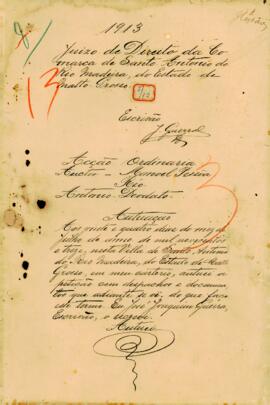 1913
Juizo de Direito da Co
marca de Santo Antonio do
Rio Madeira, do Estado de
Matto Grosso
Escrivão
Acção Ordinaria
Auctor - Manoel
Réo
Antonio Deodato
Autuação
Aos vinte e quatro dias do mez de
Julho do anno de mil novecentos
e treze, nesta Villa de Santo Antonio
do Rio Madeira, do Estado de Matto
Grosso, em meu cartorio, autuei a
petição com despachos e documen
tos que adiante se vê, do que faço
este termo. Eu José Joaquim
Escrivão, o escrevi